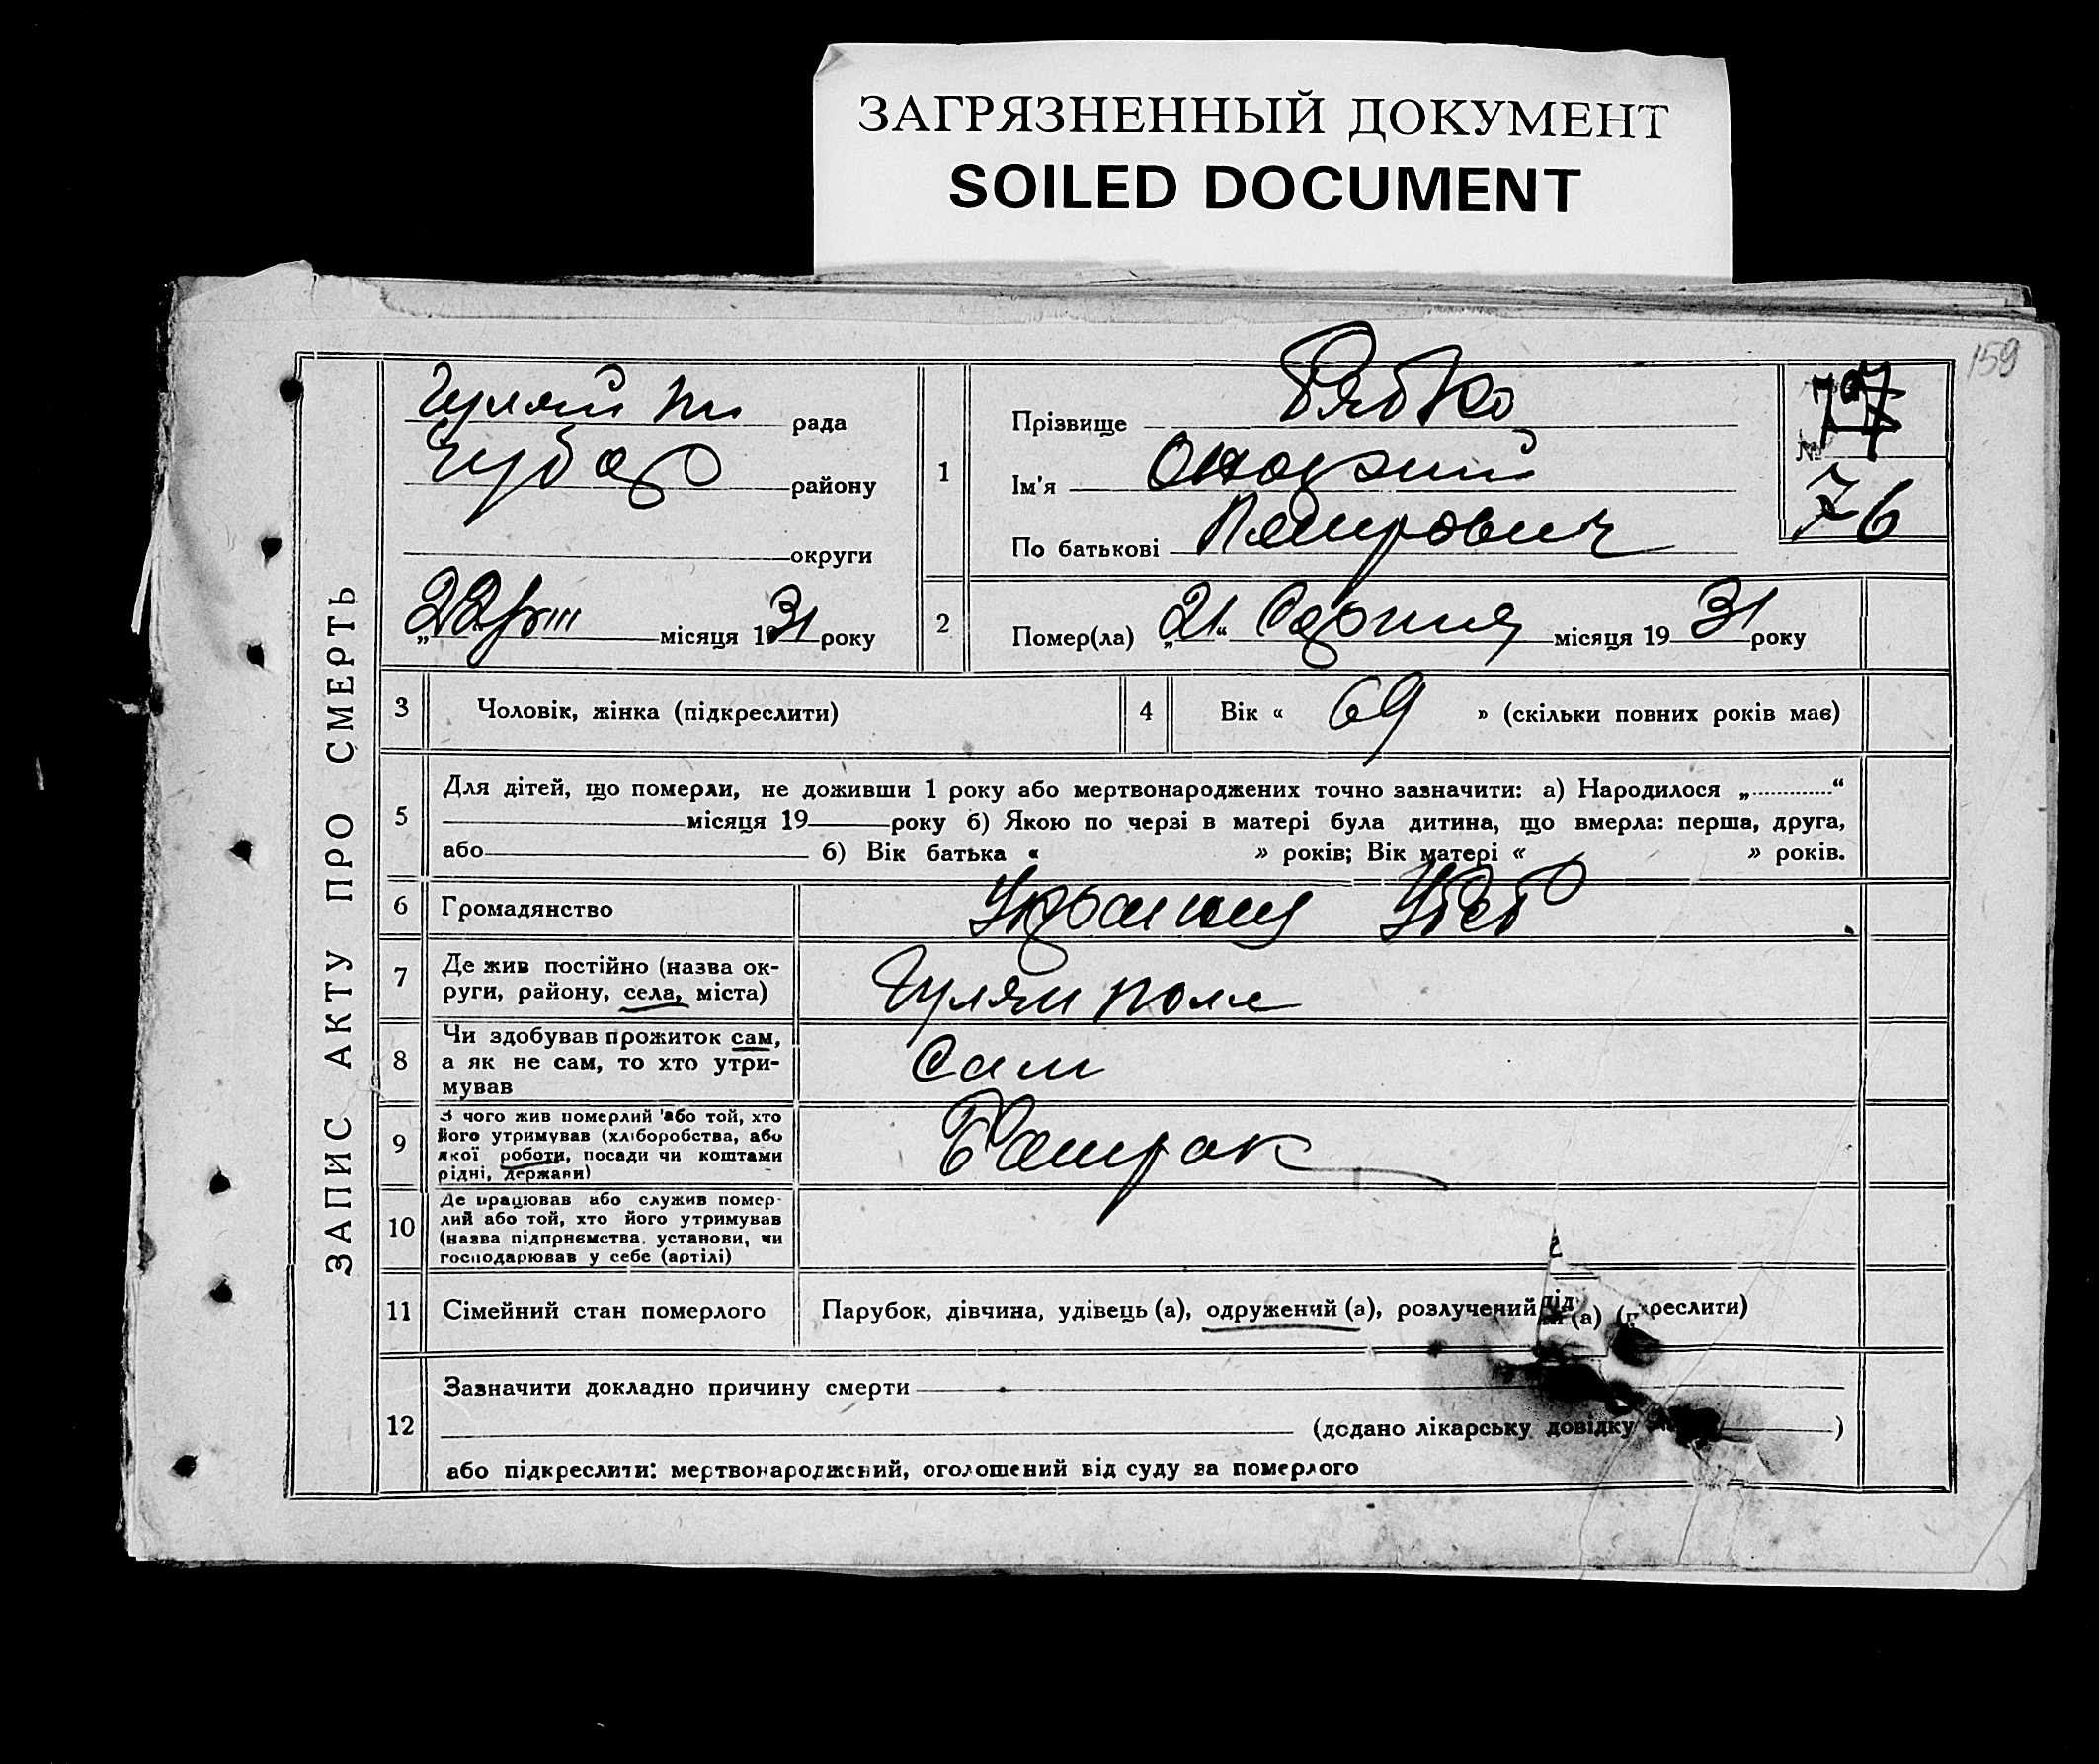 ЗАГРЯЗНЕННЫЙ ДОКУМЕНТ
SOILED DOCUMENT
159
ЗАПИС АКТУ ПРО СМЕРТЬ
Гуляй рада
району
округи
22/VIII місяця 1931 року
1
Прізвище Рябко
Ім'я
По батькові Петрович
№
76
2
Помер(ла) „21“ Серпня місяця 1931 року
3
Чоловік, жінка (підкреслити)
4
Вік « 69 » (скільки повних років має)
5
Для дітей, що померли, не доживши 1 року або мертвонароджених точно зазначити: а) Народилося „ “
місяця 19 року б) Якою по черзі в матері була дитина, що вмерла: перша, друга,
або б) Вік батька « » років; Вік матері « » років.
6
Громадянство
7
Де жив постійно (назва ок-
руги, району, села, міста)
Гуляй поле
8
Чи здобував прожиток сам,
а як не сам, то хто утри-
мував
Сам
9
З чого жив померлий або той, хто
його утримував (хліборобства, або
якої роботи, посади чи коштами
рідні, держави)
Батрак
10
Де працював або служив помер-
лий або той, хто його утримував
(назва підприємства, установи, чи
господарював у себе (артілі)
11
Сімейний стан померлого
Парубок, дівчина, удівець (а), одружений (а), розлучений (а)
12
Зазначити докладно причину смерти
(додано лікарську довідку )
або підкреслити: мертвонароджений, оголошений від суду за померлого